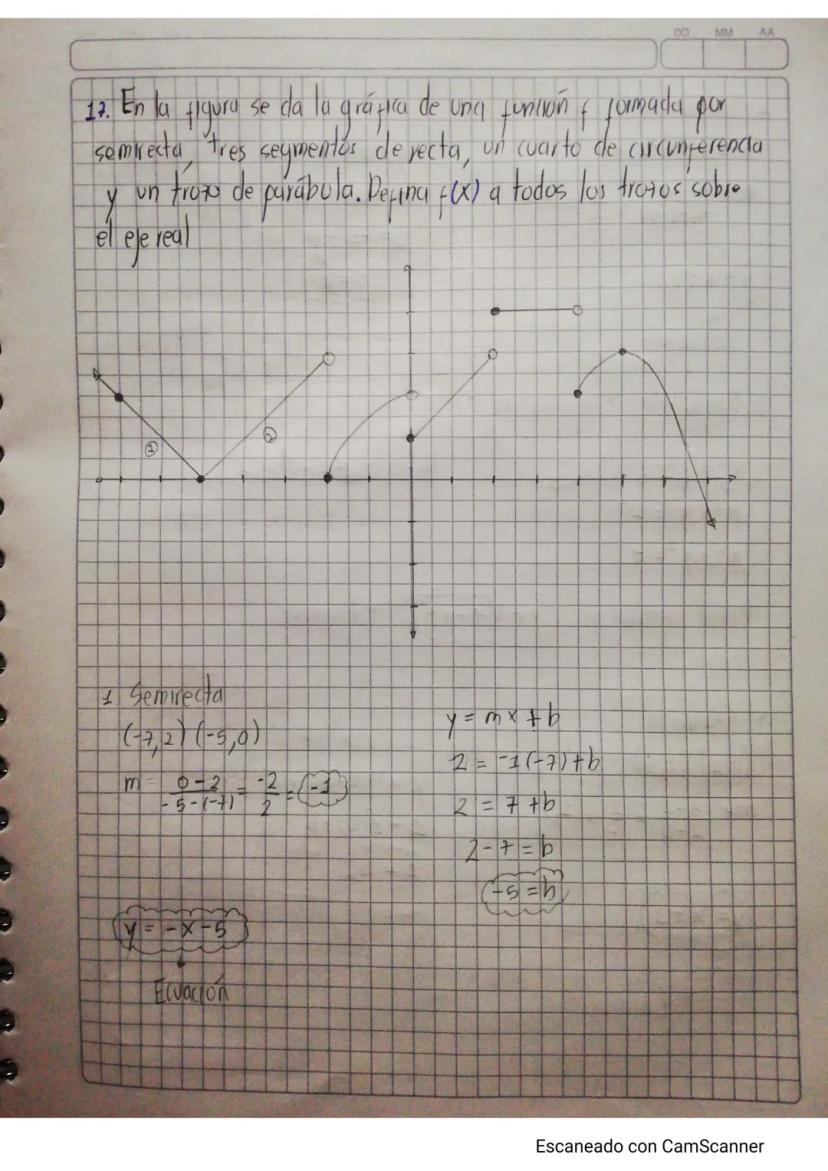 DD MM AA
17. En la figura se da la gráfica de una función f formada por
semirecta, tres segmentos de recta, un cuarto de circunferencia
y un trozo de parábola. Defina f(x) a todos los trozos sobre
el eje real
①
②
1 Semirecta
(-7,2) (-5,0)
m = 0-2 / -5-(-7) = -2 / 2 = -1
y = mx + b
2 = -1(-7)+b
2 = 7 + b
2 - 7 = b
-5 = b
y = -x -5
Ecuación
Escaneado con CamScanner